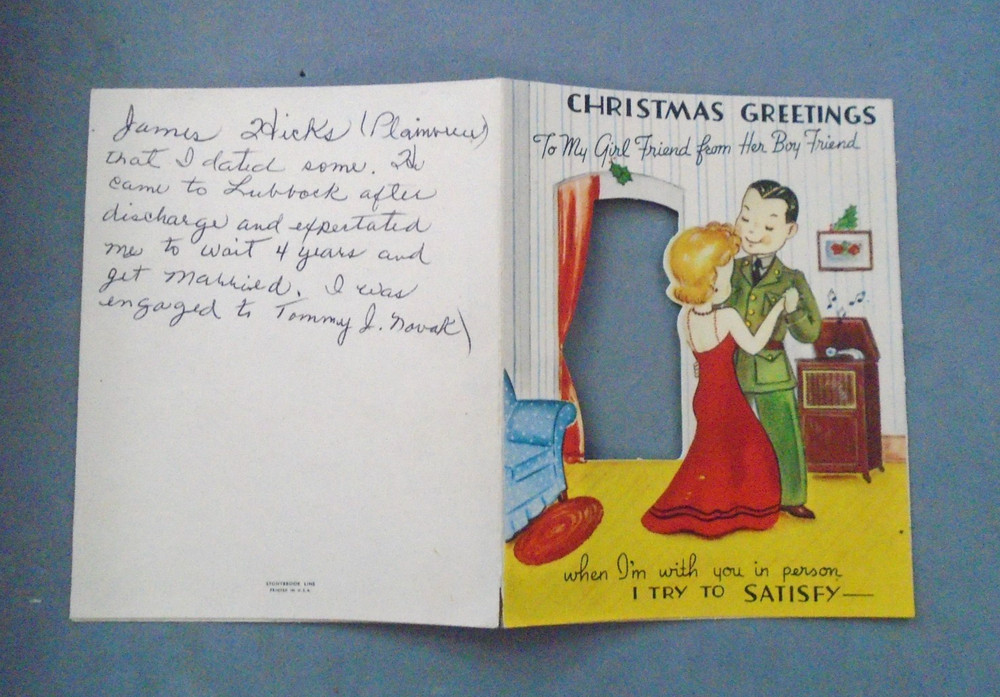 James Hicks (Plainview)
that I dated some. He
came to Lubbock after
discharge and expertated
me to wait 4 years and
get married. I was
engaged to Tommy J. Novak)
PRINTED IN U.S.A.
CHRISTMAS GREETINGS
To My Girl Friend from Her Boy Friend
when I'm with you in person
I TRY TO SATISFY—